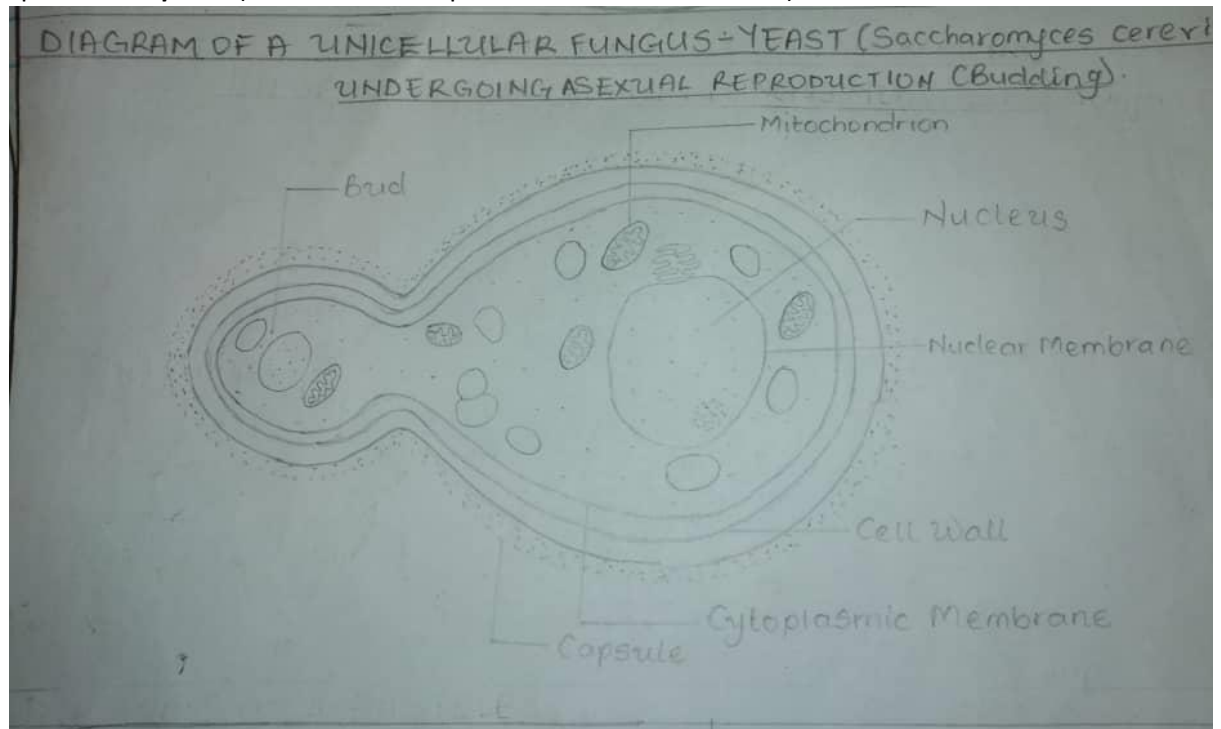 DIAGRAM OF A UNICELLULAR FUNGUS - YEAST (Saccharomyces cerevi
UNDERGOING ASEXUAL REPRODUCTION (Budding).
Mitochondrion
Bud
Nucleus
Nuclear Membrane
Cell Wall
Cytoplasmic Membrane
Capsule